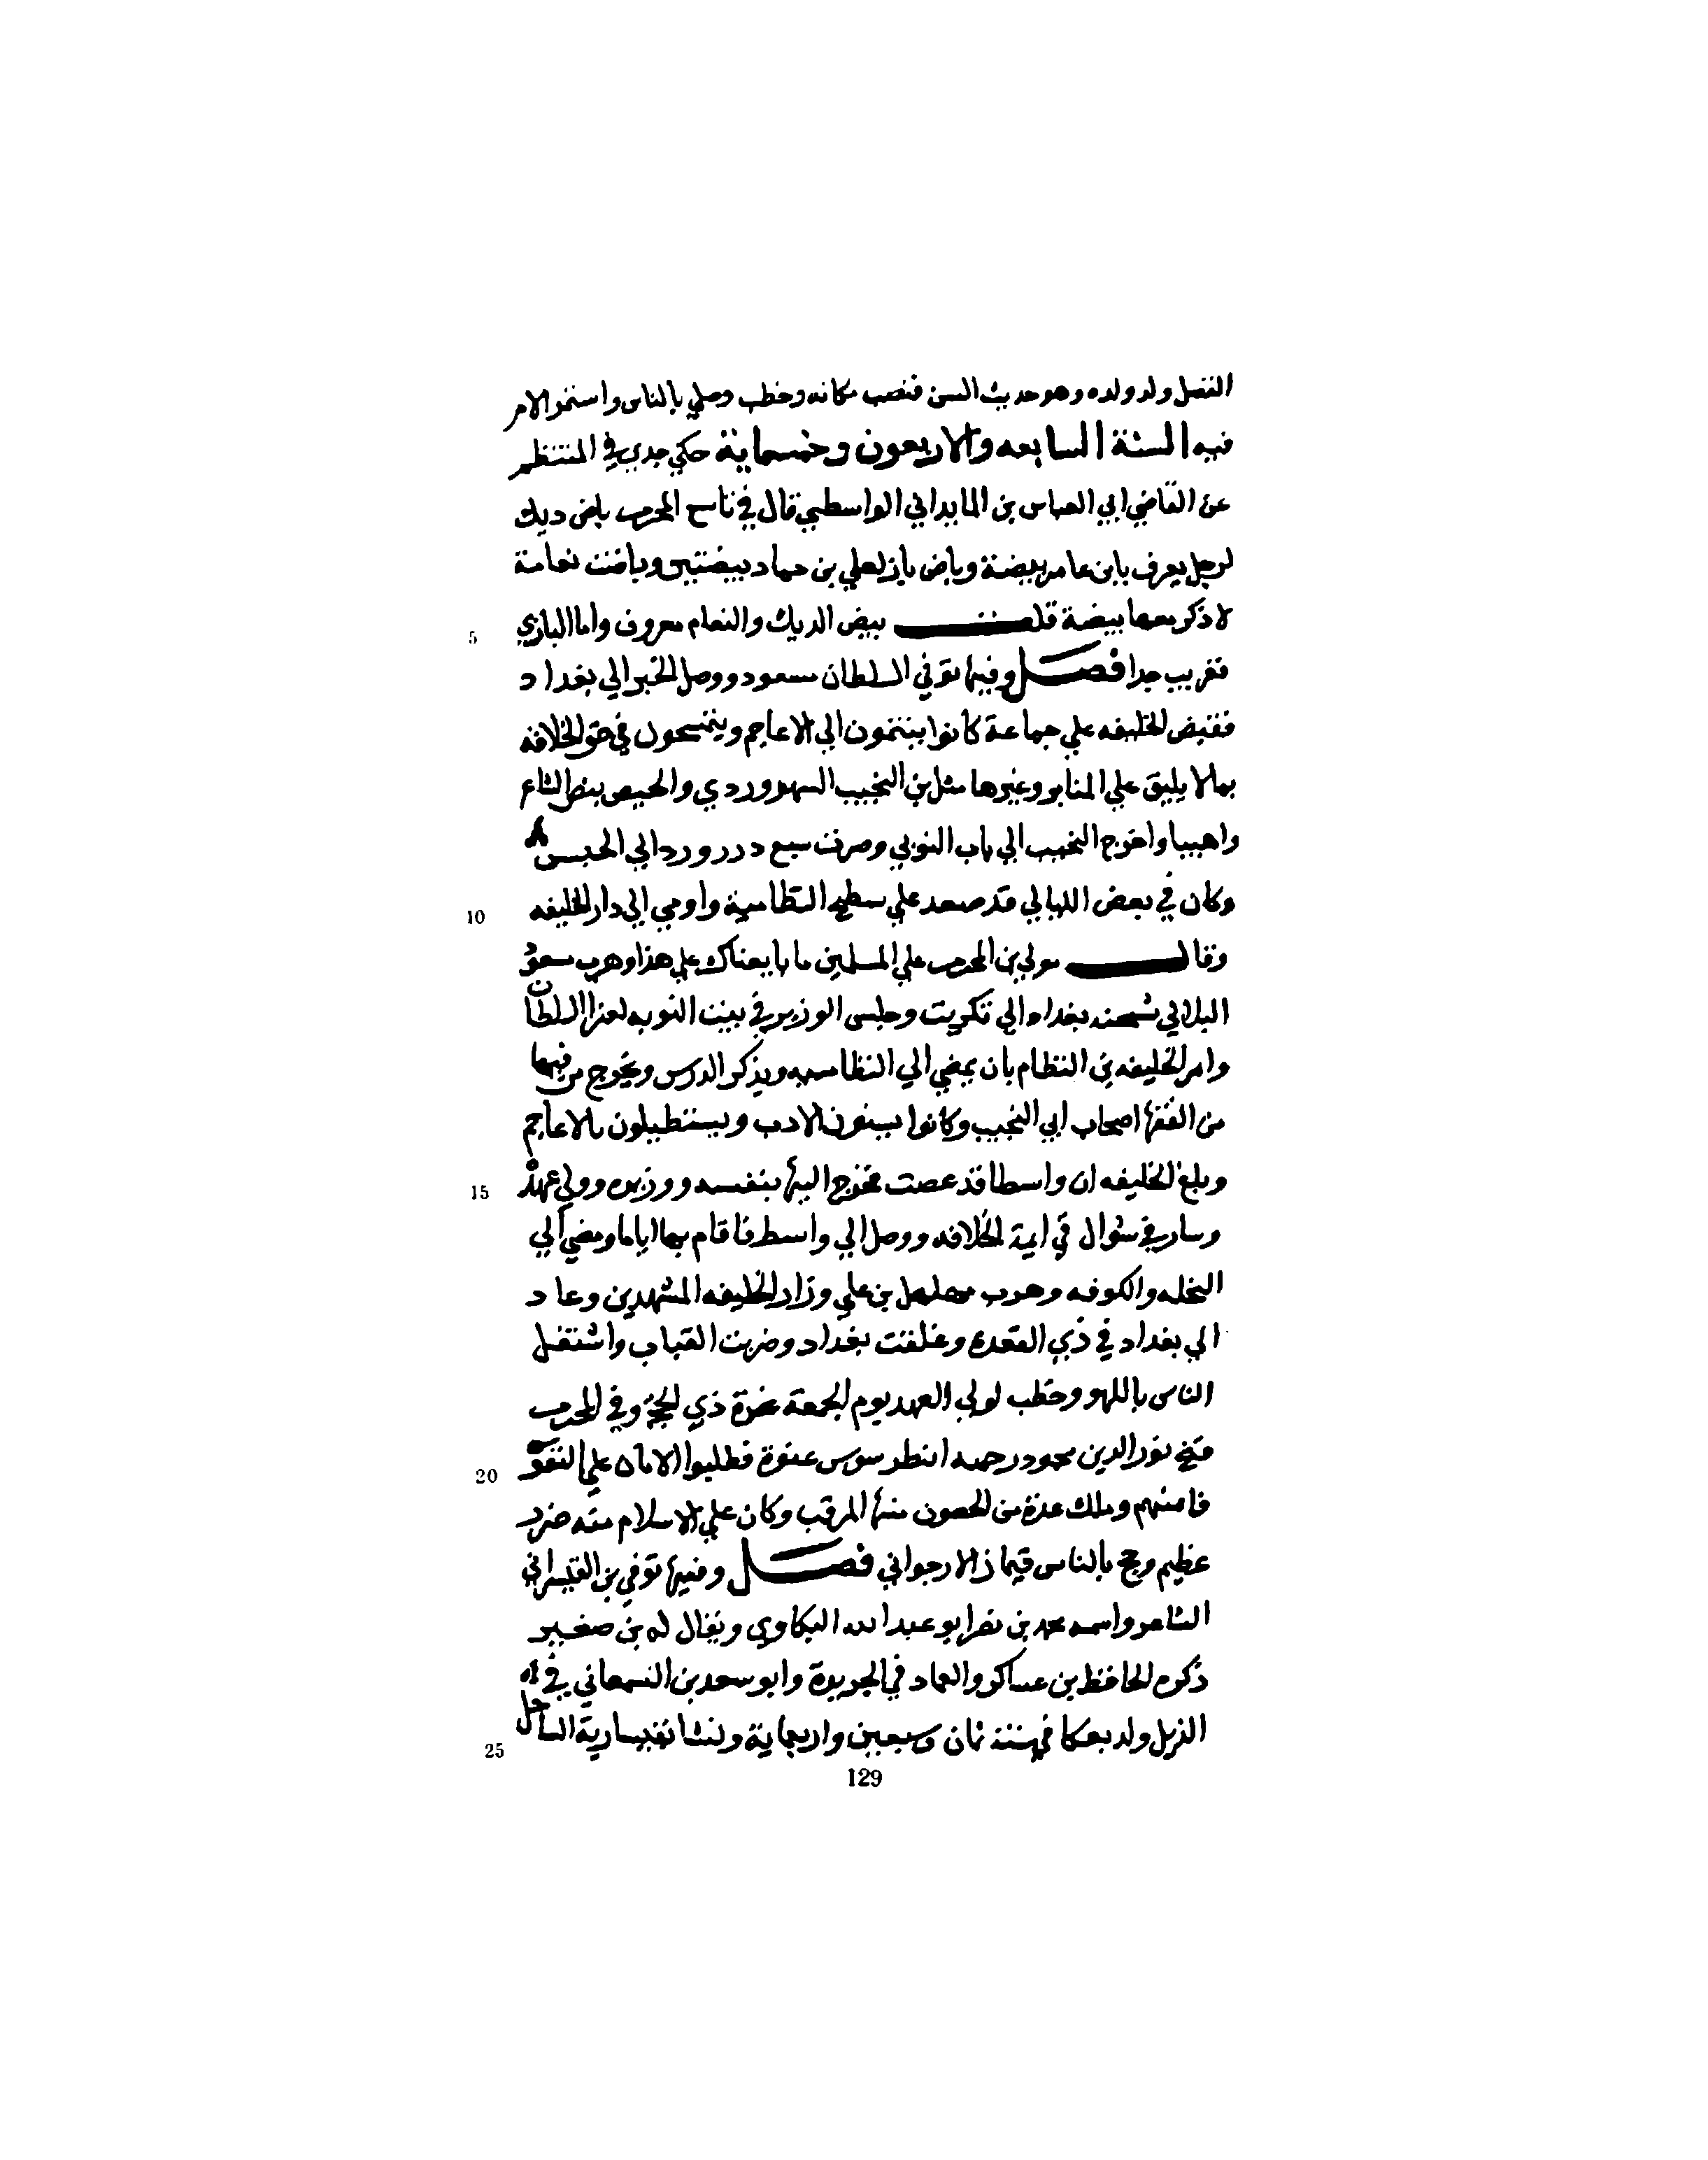 الفضل ولد ولده وهو حديث السن فنصب مكانه وخطب وصلي بالناس واستمر الامر
فيه السنة السابعه والاربعون وخمسماية حكي جدي في المنتظم
عن القاضي ابي العباس بن المايداني الواسطي قال في تاسع المحرم باض ديك
لرجل يعرف بابن عامر بيضة وباض باز لعلي بن حماد بيضتين وباضت نعامة
لا ذكر معها بيضة قلت بيض الديك والنعام معروف واما البازي
5
فغريب جدا فصل وفيها توفي السلطان مسعود ووصل الخبر الي بغداد
فقبض الخليفه علي جماعة كانوا ينتمون الي الاعاجم ويتمسحون في حق الخلافه
بمالا يليق علي المنابر وغيرها مثل بن النجيب السهروردي والحيص بيص الشاعر
واهبيا واخرج النجيب الي باب النوبي وصرفت سبع درر ورد الي الحبس
وكان في بعض الليالي قد صعد علي سطح النظامية واومي الي دار الخليفه
10
وقال مولي بن المحرم علي المسلمين ما بايعناك علي هذا وهرب مسعود
البلالي شحنه بغداد الي تكريت وجلس الوزير في بيت النوبه لعزا السلطان
وامر الخليفه بن النظام بان يمضي الي النظاميه ويذكر الدرس ويخرج من فيها
من الفقها اصحاب ابي النجيب وكانوا يسئون الادب ويستطيلون بالاعاجم
وبلغ الخليفه ان واسطا قد عصت فخرج اليها بنفسه ووزيره وولي عهده
15
وسار في شوال في ابهة الخلافه ووصل الي واسط فاقام بها اياما ومضي الي
النخله والكوفه وهرب مهلهل بن علي وزار الخليفه المشهدين وعاد
الي بغداد في ذي القعده وغلقت بغداد وضربت القباب واشتغل
الناس باللهو وخطب لولي العهد يوم الجمعة غرة ذي الحجة وفي المحرم
فتح نور الدين محمود رحمه انطرسوس عنوة فطلبوا الامان علي النفو
20
فامنهم وملك عدة من الحصون منها المرقب وكان علي الاسلام منه ضرر
عظيم وحج بالناس قيماز الارجواني فصل وفيها توفي بن القيسراني
الشاعر واسمه محمد بن نصر ابو عبد الله العكاوي ويقال له بن صغير
ذكره الحافظ بن عساكر والعماد في الجريدة وابو سعد بن السمعاني في
الذيل ولد بعكا في سنة ثمان وسبعين واربعماية ونشا بقيسارية الساحل
25
129